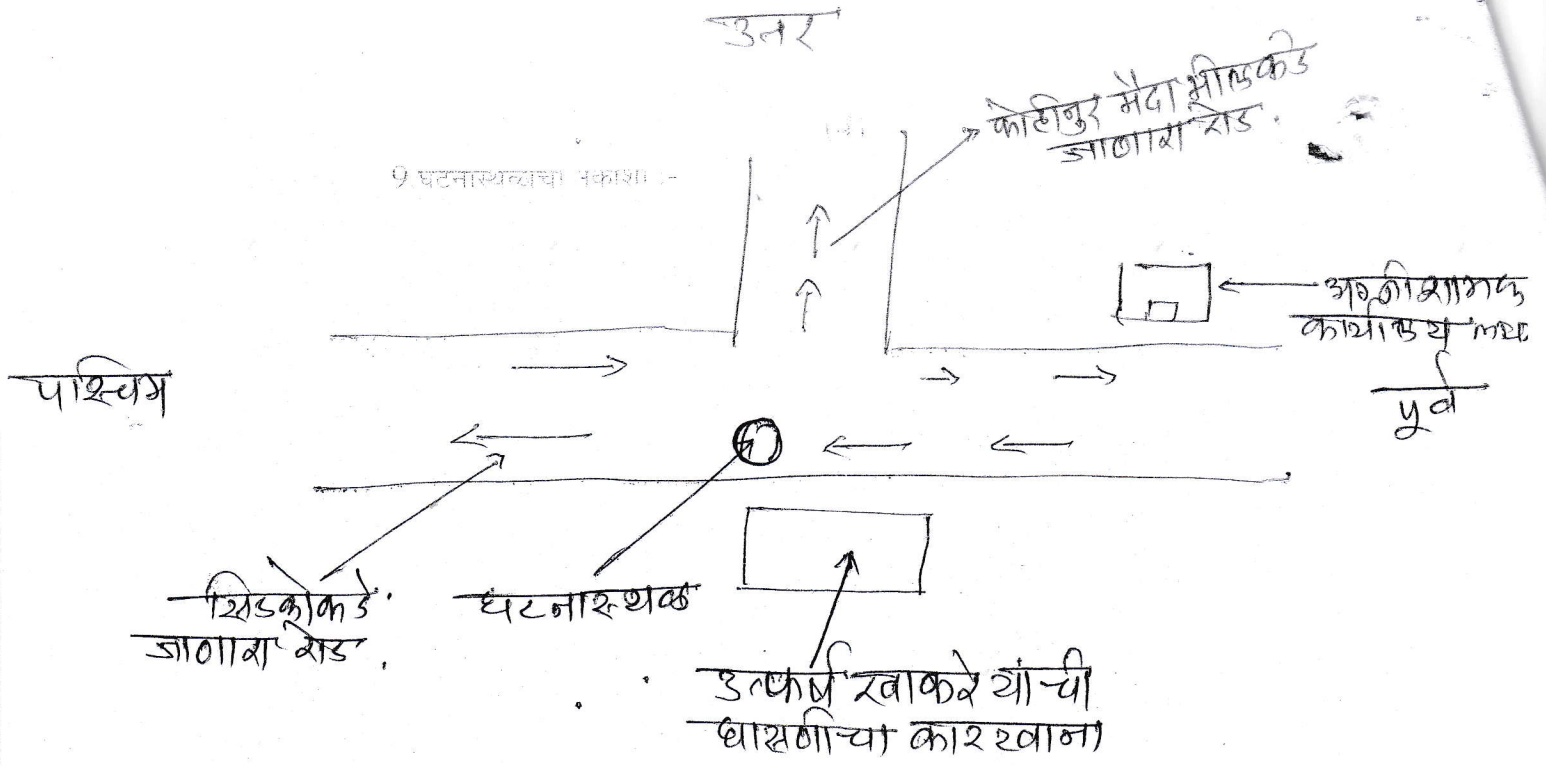 उत्तर
कोहीनुर मैदा मीलकडे
जाणारा रोड.
9.घटनास्थळाचा नकाशा :-
अग्नीशामक
कार्यालय
पश्चिम
पूर्व
सिडकोकडे
जाणारा रोड.
घटनास्थळ
उत्कर्ष खाकरे यांची
घासणीचा कारखाना